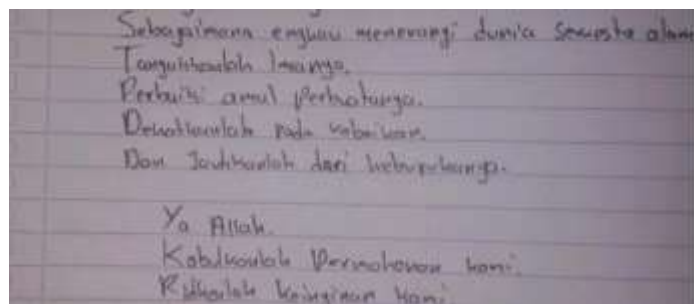 Sebagaimana engkau menerangi dunia semesta alam
Tangguhkanlah Imanya.
Perbaiki amal Perbuatanya.
Dekatkanlah pada kebaikan.
Dan Jauhkanlah dari keburukanya.
Ya Allah.
Kabulkanlah Permohonan kami.
Ridhoilah keinginan kami